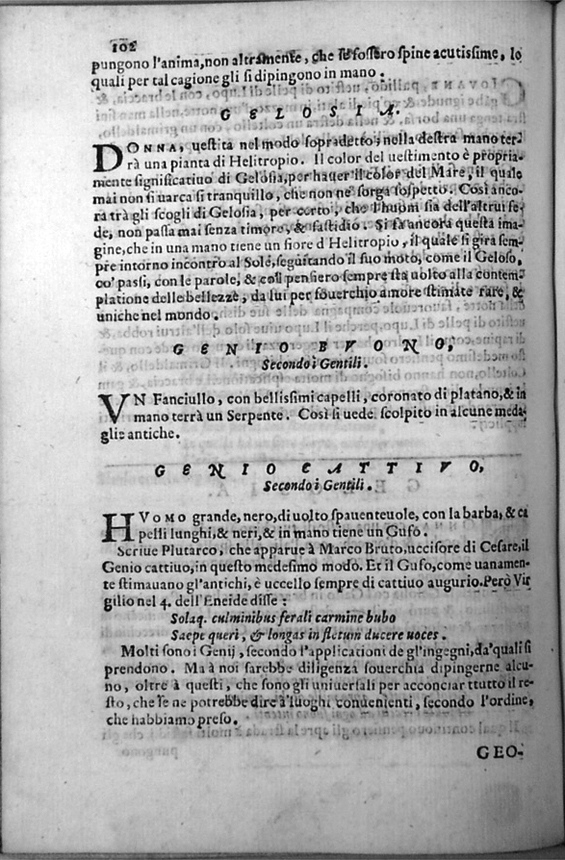 102
pungono l'anima, non altramente, che se fossero spine acutissime, lo
quali per tal cagione gli si dipingono in mano.
GELOSIA.
DONNA, uestita nel modo sopradetto; nella destra mano ter-
rà una pianta di Helitropio. Il color del uestimento è propria-
mente significatiuo di Gelosia, per hauer il color del Mare, il quale
mai non si uarca si tranquillo, che non ne sorga sospetto. Così anco-
ra trà gli scogli di Gelosia, per certo, che l'huom sia dell'altrui fe-
de, non passa mai senza timore, & fastidio. Si fà ancora questa ima-
gine, che in una mano tiene un fiore d'Helitropio, il quale si gira sem-
pre intorno incontro al Sole, seguitando il suo moto, come il Geloso,
co' passi, con le parole, & col pensiero sempre stà uolto alla contem-
platione delle bellezze, da lui per souerchio amore stimate rare, &
uniche nel mondo.
GENIO BVONO,
Secondo i Gentili.
VN Fanciullo, con bellissimi capelli, coronato di platano, & in
mano terrà un Serpente. Così si uede scolpito in alcune meda-
glie antiche.
GENIO CATTIVO,
Secondo i Gentili.
HVOMO grande, nero, di uolto spauenteuole, con la barba, & ca
pelli lunghi, & neri, & in mano tiene un Gufo.
Scriue Plutarco, che apparue à Marco Bruto, uccisore di Cesare, il
Genio cattiuo, in questo medesimo modo. Et il Gufo, come uanamen-
te stimauano gl'antichi, è uccello sempre di cattiuo augurio. Però Vir
gilio nel 4. dell'Eneide disse:
Solaq. culminibus ferali carmine bubo
Saepe queri, & longas in fletum ducere uoces.
Molti sono i Genij, secondo l'applicationi de gl'ingegni, da' quali si
prendono. Ma à noi sarebbe diligenza souerchia dipingerne alcu-
no, oltre à questi, che sono gli uniuersali per acconciar ttutto il re-
sto, che se ne potrebbe dire à' luoghi conuenienti, secondo l'ordine,
che habbiamo preso.
GEO-